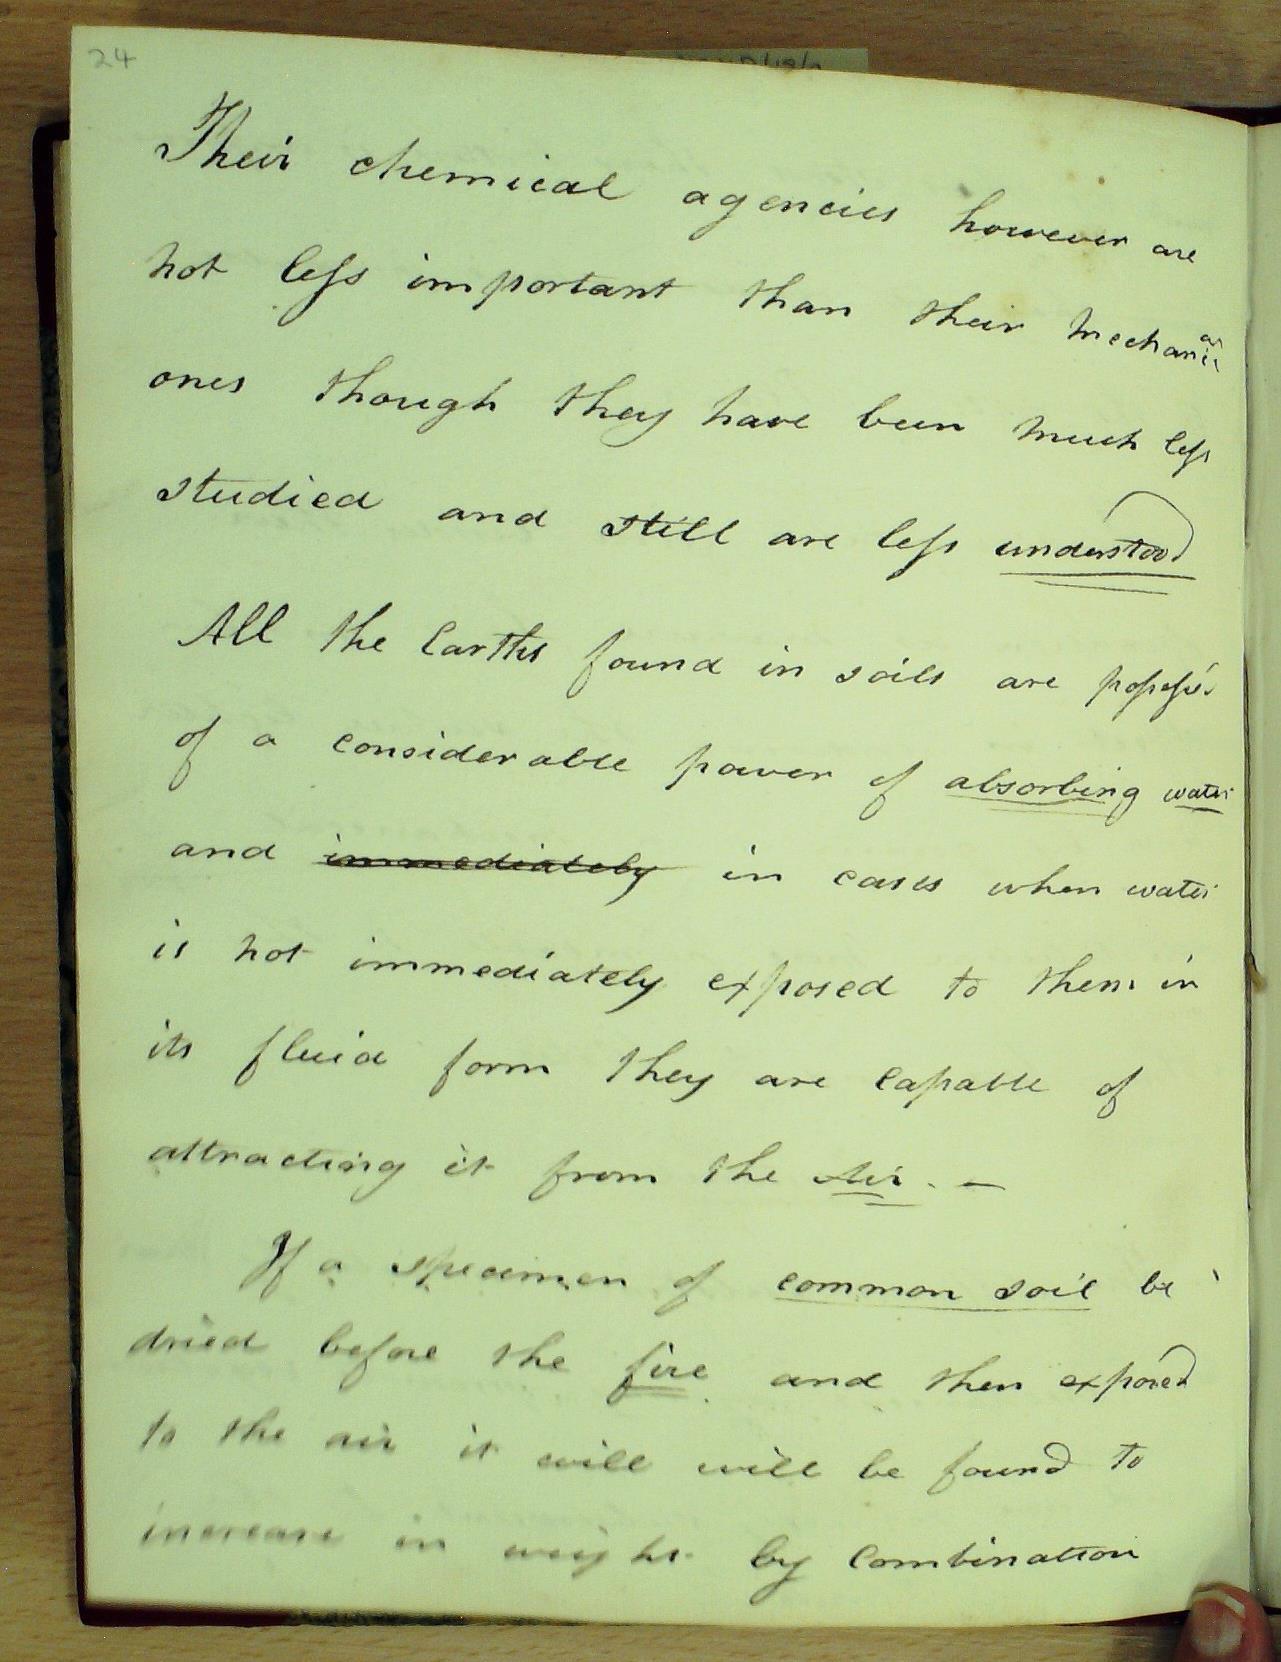 24
Their chemical agencies however are
not less important than their mechanical
ones though they have been much less
studied and still are less understood
All the Earths found in soils are possess'd
of a considerable power of absorbing water
and immediately in cases when water
is not immediately exposed to them in
its fluid form they are capable of
attracting it from the Air. —
If a specimen of common soil be
dried before the fire and then exposed
to the air it will will be found to
increase in weight by combination